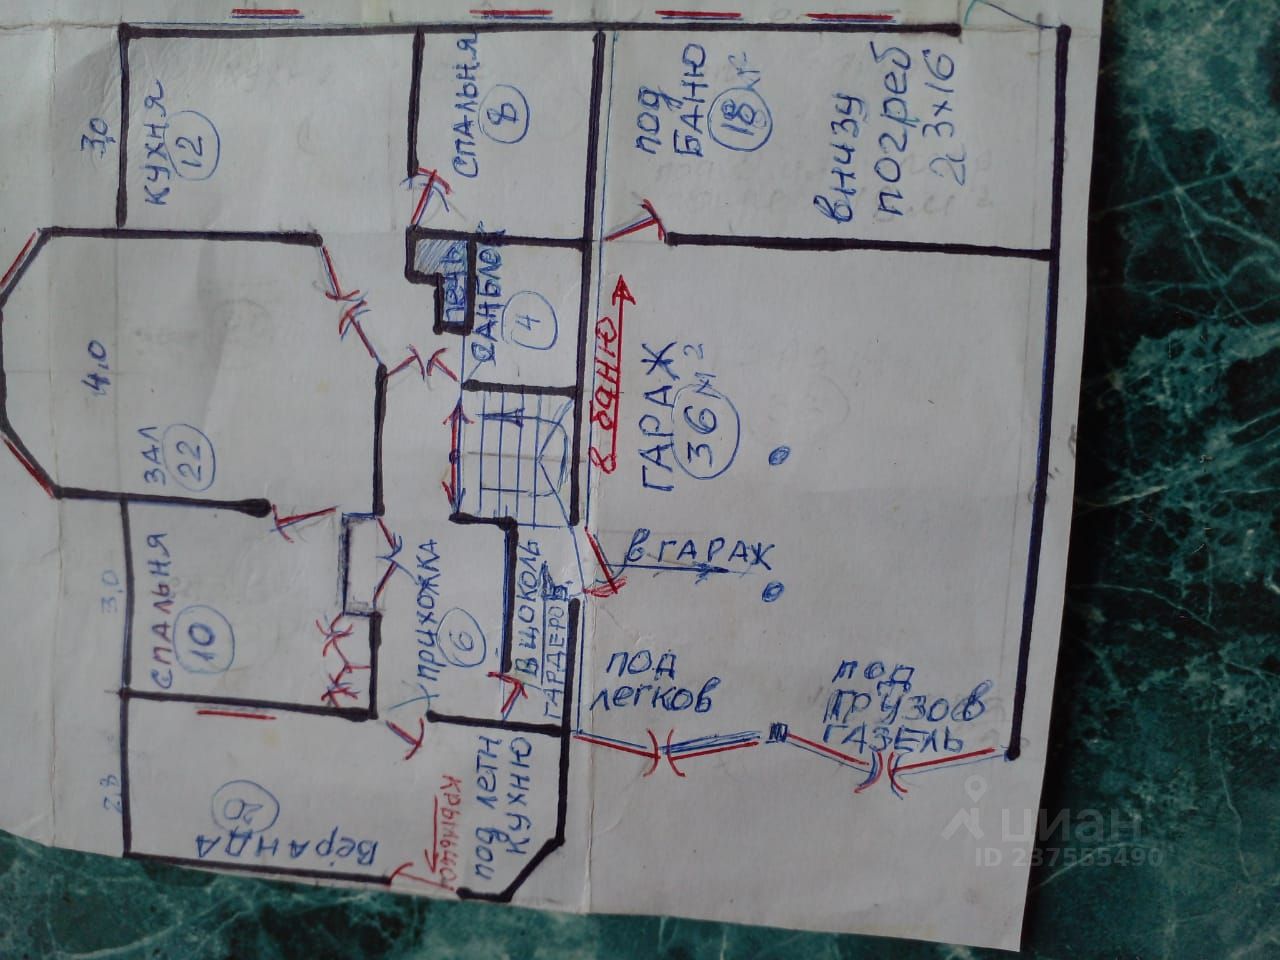 3,0
КУХНЯ
12
СПАЛЬНЯ
8
ПОД
БАНЮ
18
ВНИЗУ
ПОГРЕБ
2 3х16
4.0
ЗАЛ
22
ПЕЧЬ
САНБЛОК
4
В БАНЮ
ГАРАЖ
36 м2
3,0
СПАЛЬНЯ
10
ПРИХОЖКА
6
В ЦОКОЛЬ
ГАРДЕРОБ.
В ГАРАЖ
ПОД
ЛЕГКОВ
ПОД
ГРУЗОВ
ГАЗЕЛЬ
2,8
ВЕРАНДА
9
КРЫЛЬЦО
ПОД ЛЕТН
КУХНЮ
циан
ID 237555490